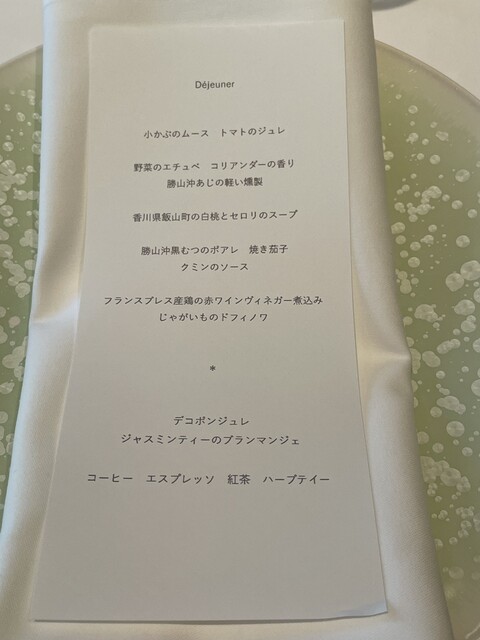 Déjeuner
小かぶのムース　トマトのジュレ
野菜のエチュベ　コリアンダーの香り
勝山沖あじの軽い燻製
香川県飯山町の白桃とセロリのスープ
勝山沖黒むつのポアレ　焼き茄子
クミンのソース
フランスブレス産鶏の赤ワインヴィネガー煮込み
じゃがいものドフィノワ
*
デコポンジュレ
ジャスミンティーのブランマンジェ
コーヒー　エスプレッソ　紅茶　ハーブテイー